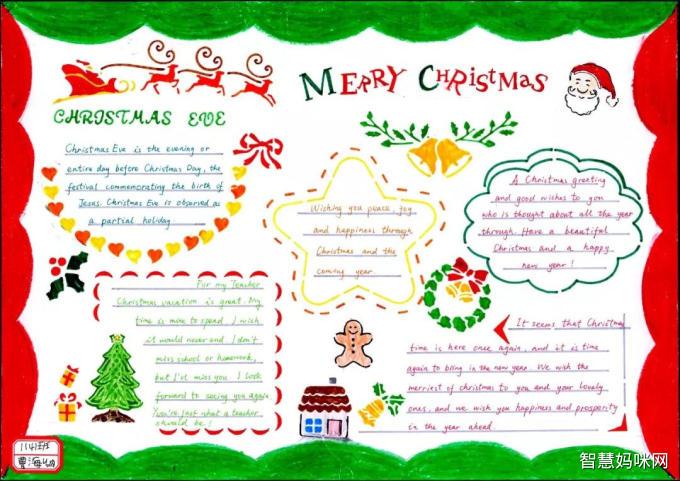 MERRY CHRistMas
CHRISTMAS EVE
Christmas Eve is the evening or
entire day before Christmas Day, the
festival commemorating the birth of
Jesus. Christmas Eve is observed as
a partial holiday.
Wishing you peace, joy
and happiness through
Christmas and the
coming year
A Christmas greeting
and good wishes to you
who is thought about all the year
through. Have a beautiful
Christmas and a happy
new year!
For my Teacher
Christmas vacation is great. My
time is mine to spend. I wish
it would never end. I don't
miss school or homework,
but I've miss you. I look
forward to seeing you again
You're just what a teacher
should be!
It seems that Christmas
time is here once again, and it is time
again to bring in the new year. We wish the
merriest of christmas to you and your lovely
ones, and we wish you happiness and prosperity
in the year ahead.
1141班
智慧妈咪网